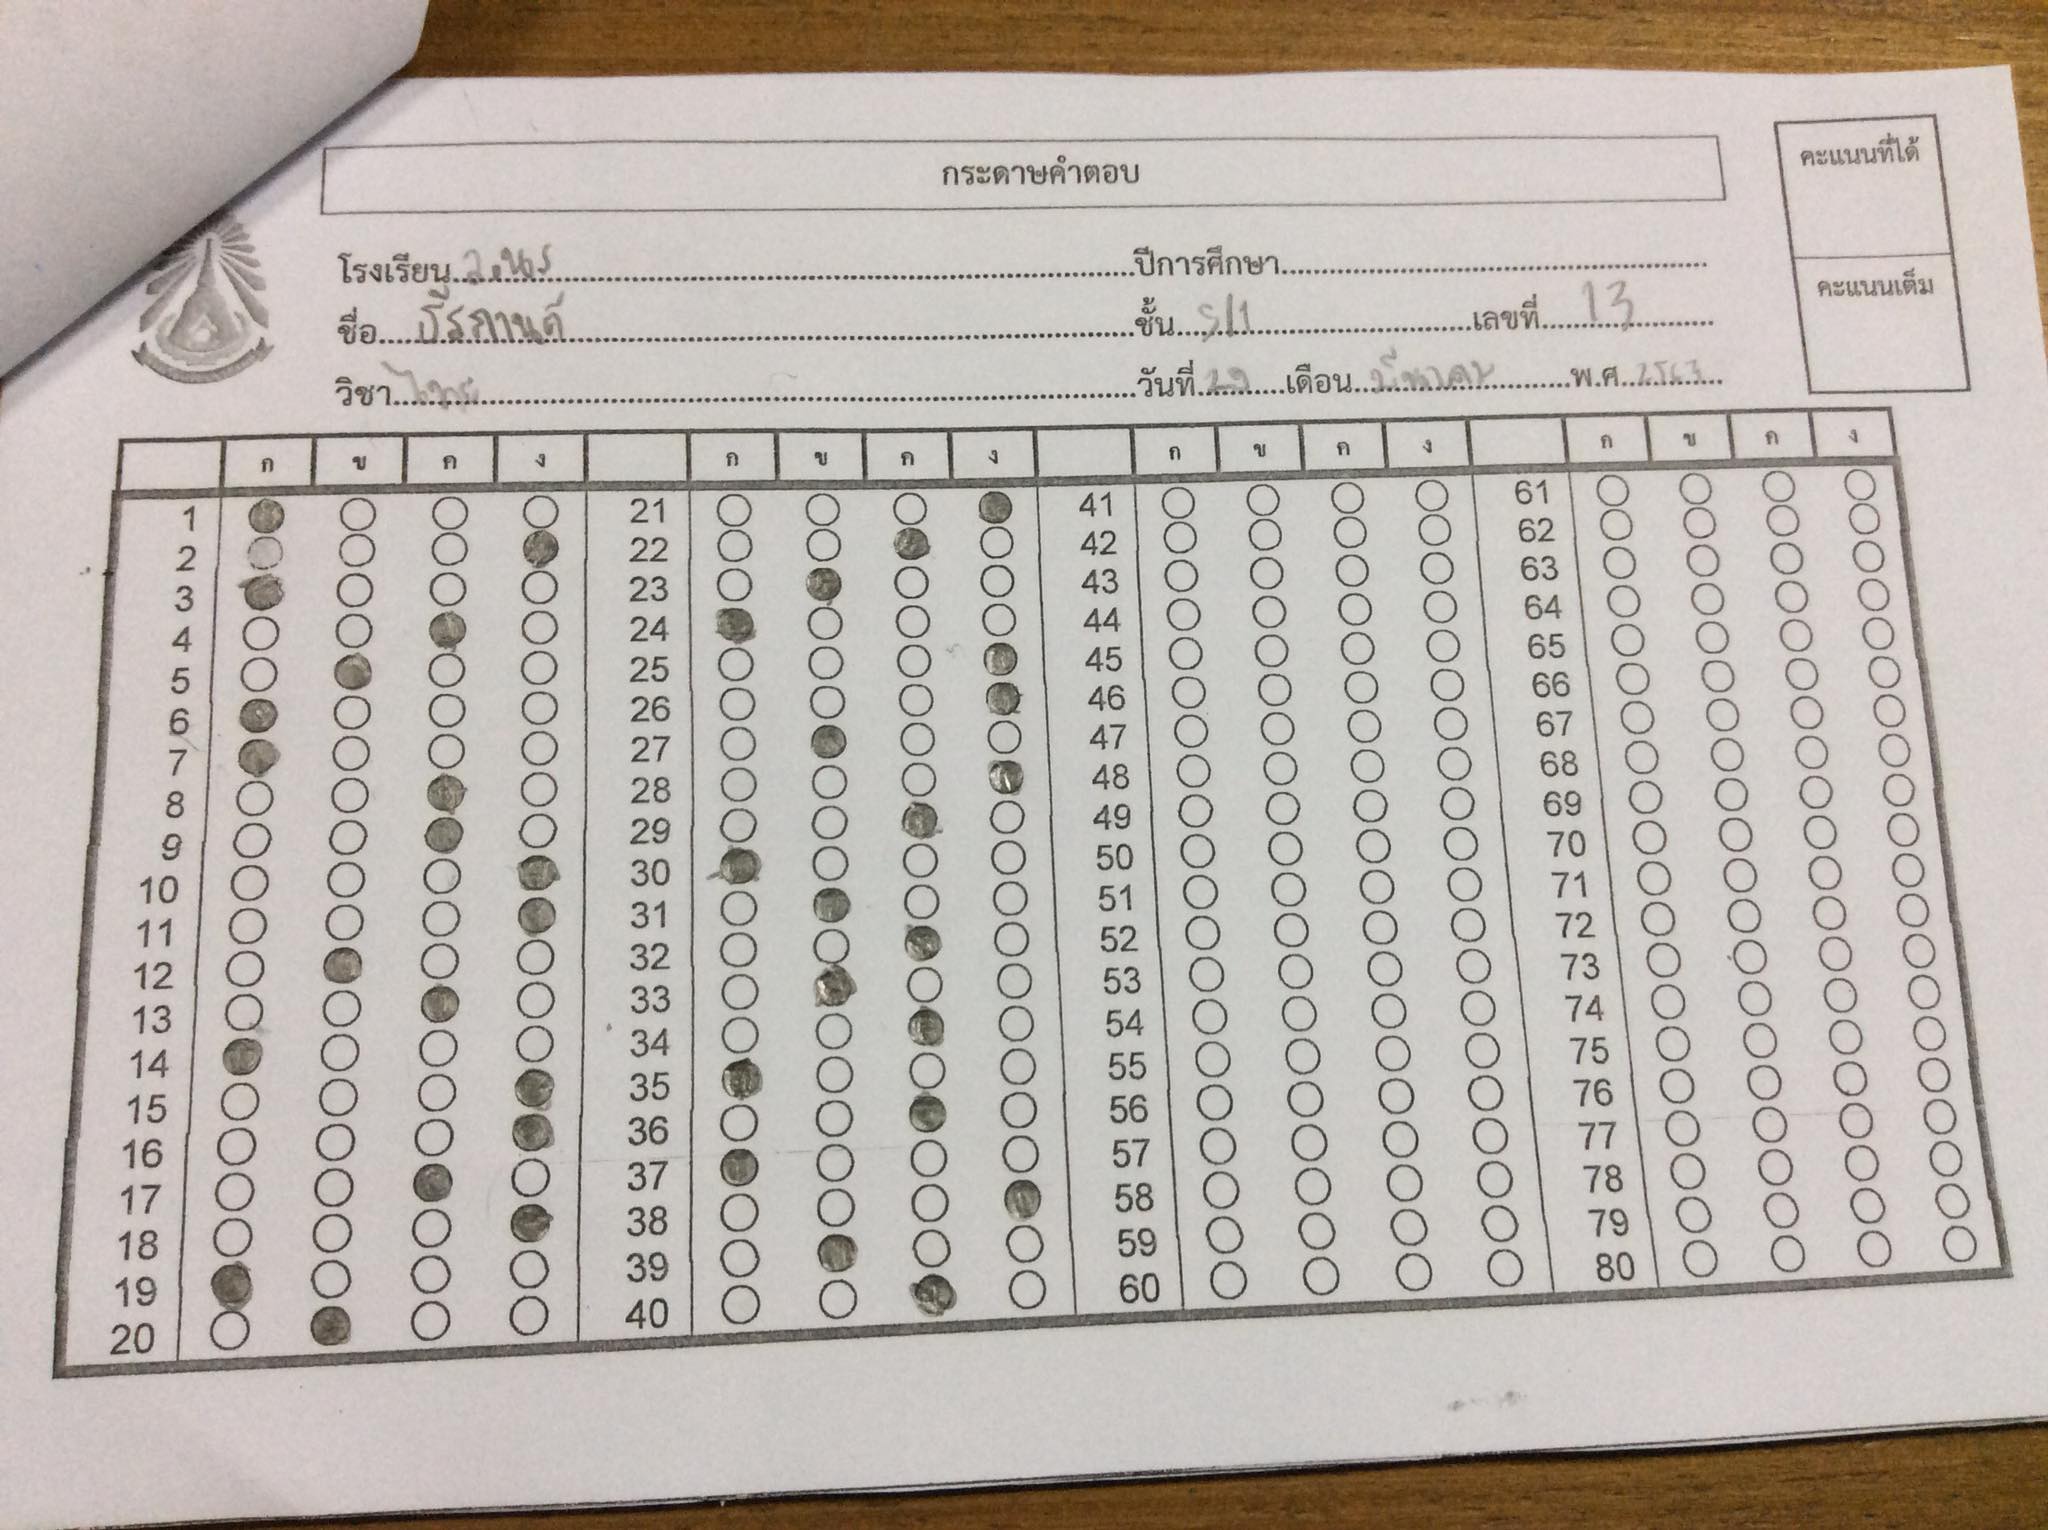 กระดาษคำตอบ
คะแนนที่ได้
คะแนนเต็ม
โรงเรียน ปีการศึกษา
ชื่อ ธีรกานต์ ชั้น 5/1 เลขที่ 13
วิชา ไทย วันที่ เดือน มีนาคม พ.ศ. 2563
ก ข ค ง ก ข ค ง ก ข ค ง ก ข ค ง
1 21 41 61
2 22 42 62
3 23 43 63
4 24 44 64
5 25 45 65
6 26 46 66
7 27 47 67
8 28 48 68
9 29 49 69
10 30 50 70
11 31 51 71
12 32 52 72
13 33 53 73
14 34 54 74
15 35 55 75
16 36 56 76
17 37 57 77
18 38 58 78
19 39 59 79
20 40 60 80